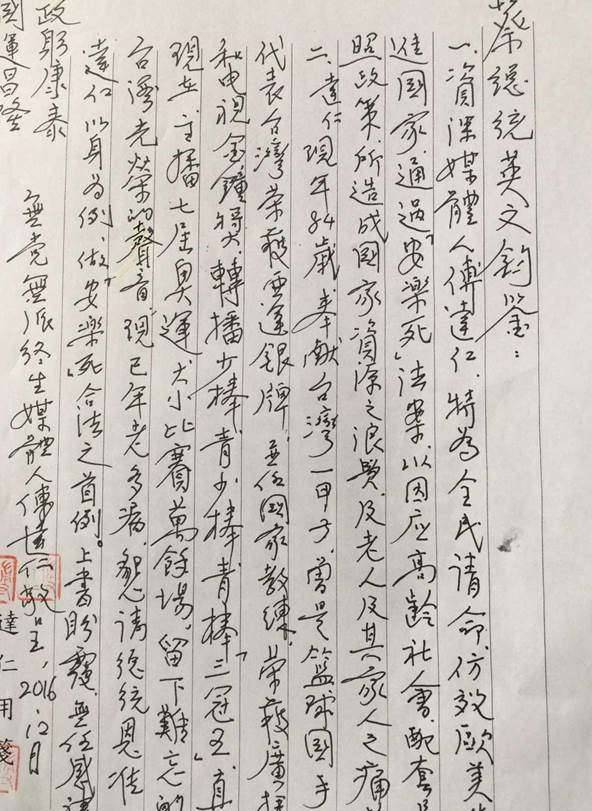 蔡總統英文鈞鑒：
一、資深媒體人傅達仁，特為全民請命，仿效歐美先
進國家，通過「安樂死」法案，以因应高齡社會，配套
照政策，所造成國家資源之浪費，及老人及其家人之痛
二、達仁現年84歲，奉献台灣一甲子，曾是籃球國手
代表台灣榮獲亞運銀牌，並任國家教練，榮獲廣播
電視金鐘獎，轉播少棒、青少棒、青棒「三冠王」，真
現兵，主播七屆奧運，大小比賽萬餘場，留下難忘的
台灣光榮的聲音，現已年老多病，懇請總統恩准
達仁以身為例，做「安樂死」合法之首例。上書盼覆，無任感
政躬康泰
國運昌隆
無党無派終生媒體人傅達仁敬呈，2016、12月
達仁用箋